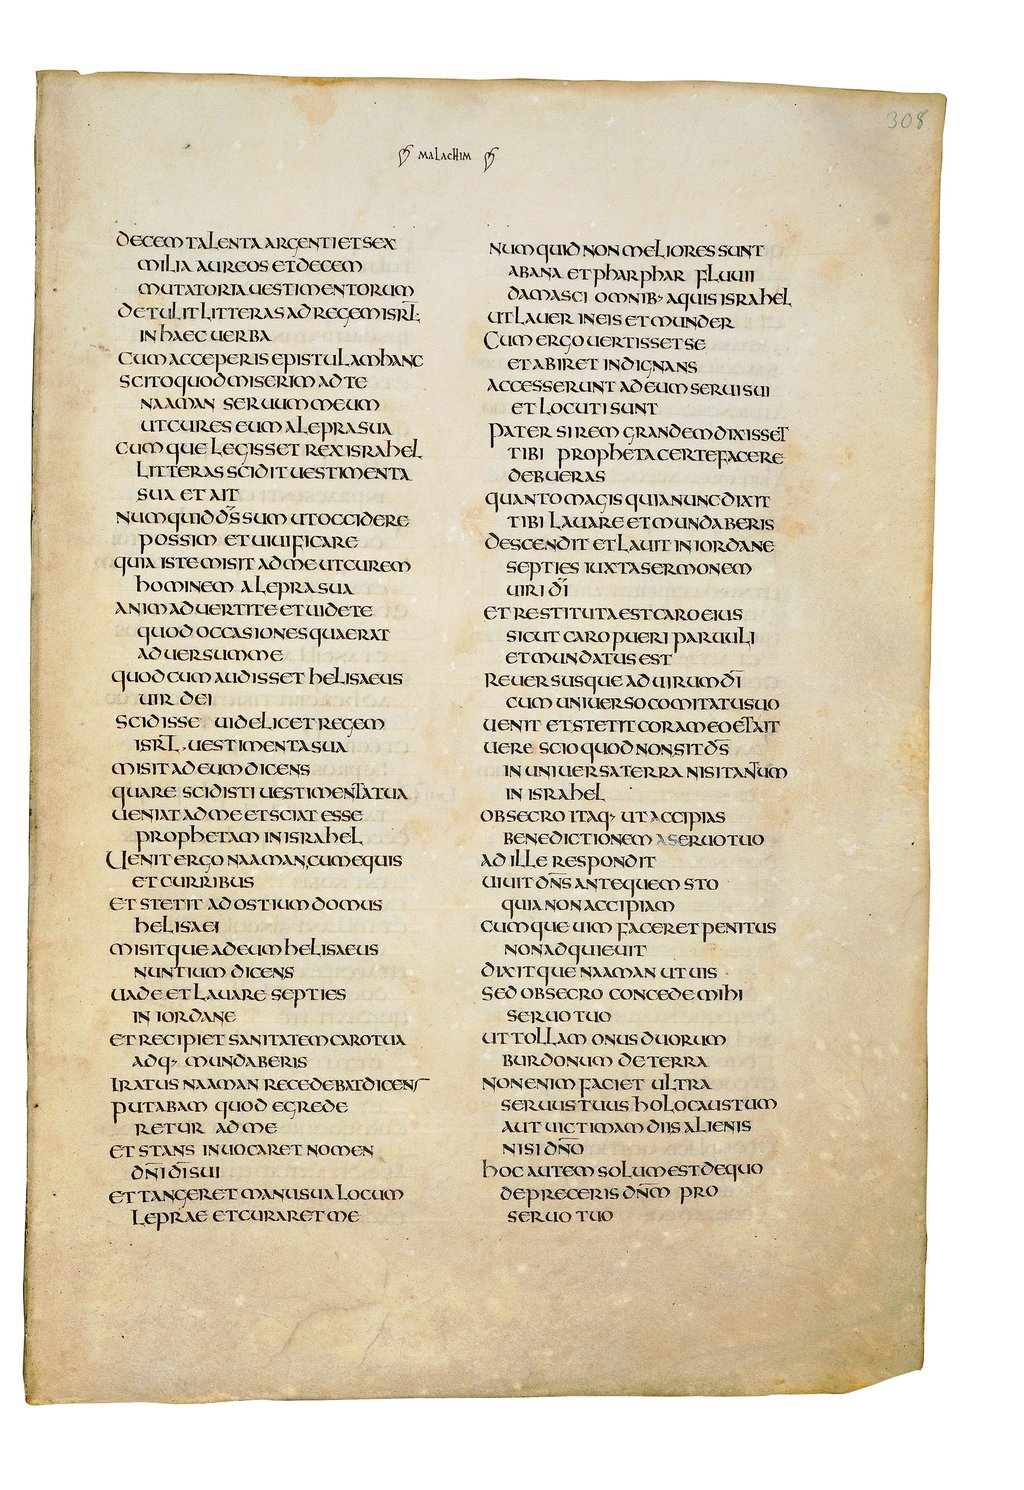 308
MALACHIM
DECEM TALENTA ARGENTI ET SEX
MILIA AUREOS ET DECEM
MUTATORIA UESTIMENTORUM
DETULIT LITTERAS AD REGEM ISRL̅
IN HAEC UERBA
CUM ACCEPERIS EPISTULAM HANC
SCITO QUOD MISERIM AD TE
NAAMAN SERUUM MEUM
UT CURES EUM A LEPRA SUA
CUMQUE LEGISSET REX ISRAHEL
LITTERAS SCIDIT UESTIMENTA
SUA ET AIT
NUMQUID D̅S SUM UT OCCIDERE
POSSIM ET UIUIFICARE
QUIA ISTE MISIT AD ME UT CUREM
HOMINEM A LEPRA SUA
ANIMADUERTITE ET UIDETE
QUOD OCCASIONES QUAERAT
ADUERSUM ME
QUOD CUM AUDISSET HELISAEUS
UIR DEI
SCIDISSE UIDELICET REGEM
ISRL̅ UESTIMENTA SUA
MISIT AD EUM DICENS
QUARE SCIDISTI UESTIMENTA TUA
UENIAT AD ME ET SCIAT ESSE
PROPHETAM IN ISRAHEL
UENIT ERGO NAAMAN CUM EQUIS
ET CURRIBUS
ET STETIT AD OSTIUM DOMUS
HELISAEI
MISITQUE AD EUM HELISAEUS
NUNTIUM DICENS
UADE ET LAUARE SEPTIES
IN IORDANE
ET RECIPIET SANITATEM CARO TUA
ADQ· MUNDABERIS
IRATUS NAAMAN RECEDEBAT DICENS
PUTABAM QUOD EGREDE
RETUR AD ME
ET STANS INUOCARET NOMEN
DN̅I DI̅ SUI
ET TANGERET MANU SUA LOCUM
LEPRAE ET CURARET ME
NUMQUID NON MELIORES SUNT
ABANA ET PHARPHAR FLUUII
DAMASCI OMNIB· AQUIS ISRAHEL
UT LAUER IN EIS ET MUNDER
CUM ERGO UERTISSET SE
ET ABIRET INDIGNANS
ACCESSERUNT AD EUM SERUI SUI
ET LOCUTI SUNT
PATER SI REM GRANDEM DIXISSET
TIBI PROPHETA CERTE FACERE
DEBUERAS
QUANTO MAGIS QUIA NUNC DIXIT
TIBI LAUARE ET MUNDABERIS
DESCENDIT ET LAUIT IN IORDANE
SEPTIES IUXTA SERMONEM
UIRI DI̅
ET RESTITUTA EST CARO EIUS
SICUT CARO PUERI PARUULI
ET MUNDATUS EST
REUERSUSQUE AD UIRUM DI̅
CUM UNIUERSO COMITATU SUO
UENIT ET STETIT CORAM EO ET AIT
UERE SCIO QUOD NON SIT D̅S
IN UNIUERSA TERRA NISI TANTUM
IN ISRAHEL
OBSECRO ITAQ· UT ACCIPIAS
BENEDICTIONEM A SERUO TUO
AD ILLE RESPONDIT
UIUIT DN̅S ANTE QUEM STO
QUIA NON ACCIPIAM
CUMQUE UIM FACERET PENITUS
NON ADQUIEUIT
DIXITQUE NAAMAN UT UIS
SED OBSECRO CONCEDE MIHI
SERUO TUO
UT TOLLAM ONUS DUORUM
BURDONUM DE TERRA
NON ENIM FACIET ULTRA
SERUUS TUUS HOLOCAUSTUM
AUT UICTIMAM DIIS ALIENIS
NISI DN̅O
HOC AUTEM SOLUM EST DE QUO
DEPRECERIS DN̅M PRO
SERUO TUO